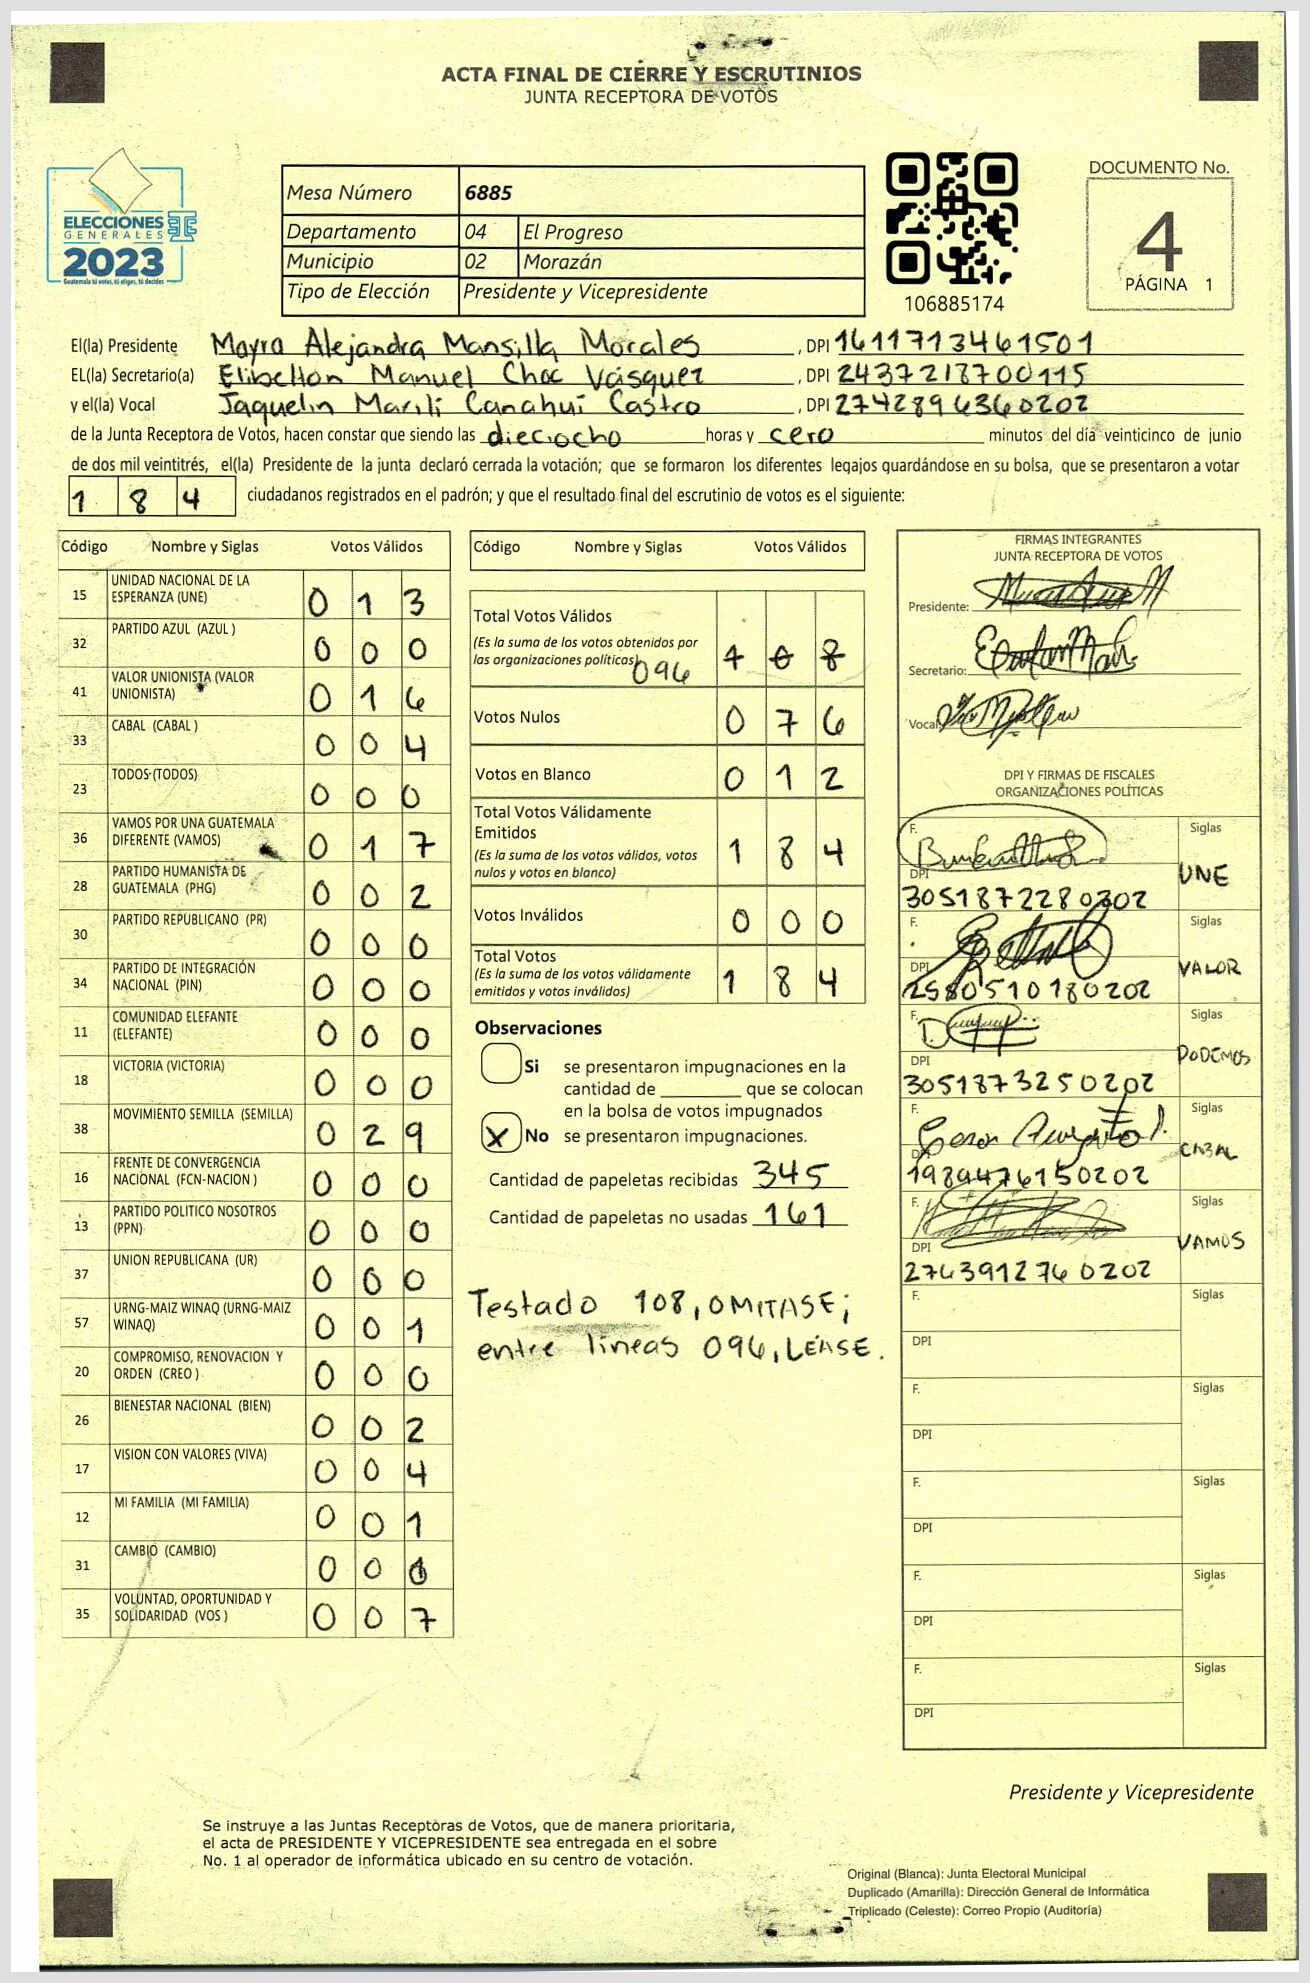 ACTA FINAL DE CIERRE Y ESCRUTINIOS
JUNTA RECEPTORA DE VOTOS
ELECCIONES
GENERALES
2023
Guatemala tú votas, tú eliges, tú decides
Mesa Número 6885
Departamento 04 El Progreso
Municipio 02 Morazán
Tipo de Elección Presidente y Vicepresidente
106885174
DOCUMENTO No.
4
PÁGINA 1
El(la) Presidente Mayra Alejandra Mansilla Morales, DPI 1611713461501
EL(la) Secretario(a) Elibelton Manuel Choc Vásquez, DPI 2437218700115
y el(la) Vocal Jaquelin Marili Canahuí Castro, DPI 2742896360202
de la Junta Receptora de Votos, hacen constar que siendo las dieciocho horas y cero minutos del día veinticinco de junio
de dos mil veintitrés, el(la) Presidente de la junta declaró cerrada la votación; que se formaron los diferentes legajos guardándose en su bolsa, que se presentaron a votar
1 8 4 ciudadanos registrados en el padrón; y que el resultado final del escrutinio de votos es el siguiente:
Código Nombre y Siglas Votos Válidos
15 UNIDAD NACIONAL DE LA ESPERANZA (UNE) 0 1 3
32 PARTIDO AZUL (AZUL ) 0 0 0
41 VALOR UNIONISTA (VALOR UNIONISTA) 0 1 6
33 CABAL (CABAL ) 0 0 4
23 TODOS (TODOS) 0 0 0
36 VAMOS POR UNA GUATEMALA DIFERENTE (VAMOS) 0 1 7
28 PARTIDO HUMANISTA DE GUATEMALA (PHG) 0 0 2
30 PARTIDO REPUBLICANO (PR) 0 0 0
34 PARTIDO DE INTEGRACIÓN NACIONAL (PIN) 0 0 0
11 COMUNIDAD ELEFANTE (ELEFANTE) 0 0 0
18 VICTORIA (VICTORIA) 0 0 0
38 MOVIMIENTO SEMILLA (SEMILLA) 0 2 9
16 FRENTE DE CONVERGENCIA NACIONAL (FCN-NACION ) 0 0 0
13 PARTIDO POLITICO NOSOTROS (PPN) 0 0 0
37 UNION REPUBLICANA (UR) 0 0 0
57 URNG-MAIZ WINAQ (URNG-MAIZ WINAQ) 0 0 1
20 COMPROMISO, RENOVACION Y ORDEN (CREO ) 0 0 0
26 BIENESTAR NACIONAL (BIEN) 0 0 2
17 VISION CON VALORES (VIVA) 0 0 4
12 MI FAMILIA (MI FAMILIA) 0 0 1
31 CAMBIO (CAMBIO) 0 0
35 VOLUNTAD, OPORTUNIDAD Y SOLIDARIDAD (VOS ) 0 0 7
Código Nombre y Siglas Votos Válidos
Total Votos Válidos
(Es la suma de los votos obtenidos por
las organizaciones políticas) 096 1 0 8
Votos Nulos 0 7 6
Votos en Blanco 0 1 2
Total Votos Válidamente
Emitidos
(Es la suma de los votos válidos, votos
nulos y votos en blanco) 1 8 4
Votos Inválidos 0 0 0
Total Votos
(Es la suma de los votos válidamente
emitidos y votos inválidos) 1 8 4
Observaciones
Si se presentaron impugnaciones en la
cantidad de ________ que se colocan
en la bolsa de votos impugnados
X No se presentaron impugnaciones.
Cantidad de papeletas recibidas 345
Cantidad de papeletas no usadas 161
Testado 108, OMITASE;
entre lineas 096, LÉASE.
FIRMAS INTEGRANTES
JUNTA RECEPTORA DE VOTOS
Presidente:
Secretario:
Vocal
DPI Y FIRMAS DE FISCALES
ORGANIZACIONES POLÍTICAS
F. Siglas
DPI UNE
3051872280202
F. Siglas
DPI VALOR
2580510180202
F. Siglas
DPI PODEMOS
3051873250202
F. Siglas
DPI CABAL
1989476150202
F. Siglas
DPI VAMOS
2743912760202
F. Siglas
DPI
F. Siglas
DPI
F. Siglas
DPI
F. Siglas
DPI
F. Siglas
DPI
Presidente y Vicepresidente
Se instruye a las Juntas Receptoras de Votos, que de manera prioritaria,
el acta de PRESIDENTE Y VICEPRESIDENTE sea entregada en el sobre
No. 1 al operador de informática ubicado en su centro de votación.
Original (Blanca): Junta Electoral Municipal
Duplicado (Amarilla): Dirección General de Informática
Triplicado (Celeste): Correo Propio (Auditoría)